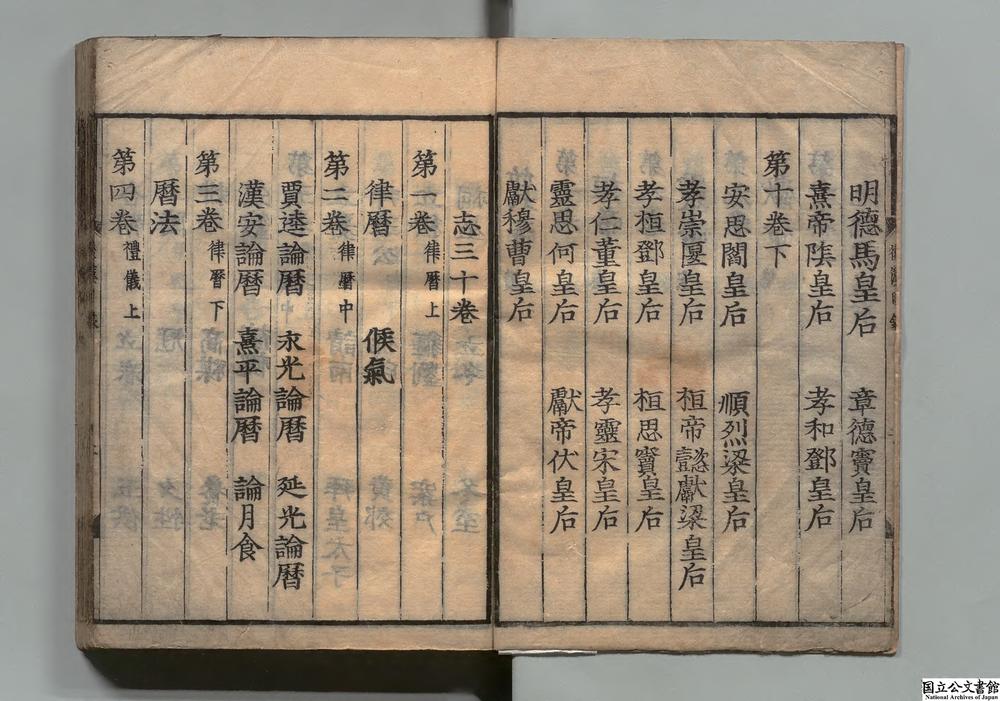 明德馬皇后 章德竇皇后
熹帝陰皇后 孝和鄧皇后
第十卷下
安思閻皇后 順烈梁皇后
孝崇匽皇后 桓帝懿獻梁皇后
孝桓鄧皇后 桓思竇皇后
孝仁董皇后 孝靈宋皇后
靈思何皇后 獻帝伏皇后
獻穆曹皇后
志三十卷
第一卷 律曆上
律曆 候氣
第二卷 律曆中
賈逵論曆 永光論曆 延光論曆
漢安論曆 熹平論曆 論月食
第三卷 律曆下
曆法
第四卷 禮儀上
国立公文書館
National Archives of Japan